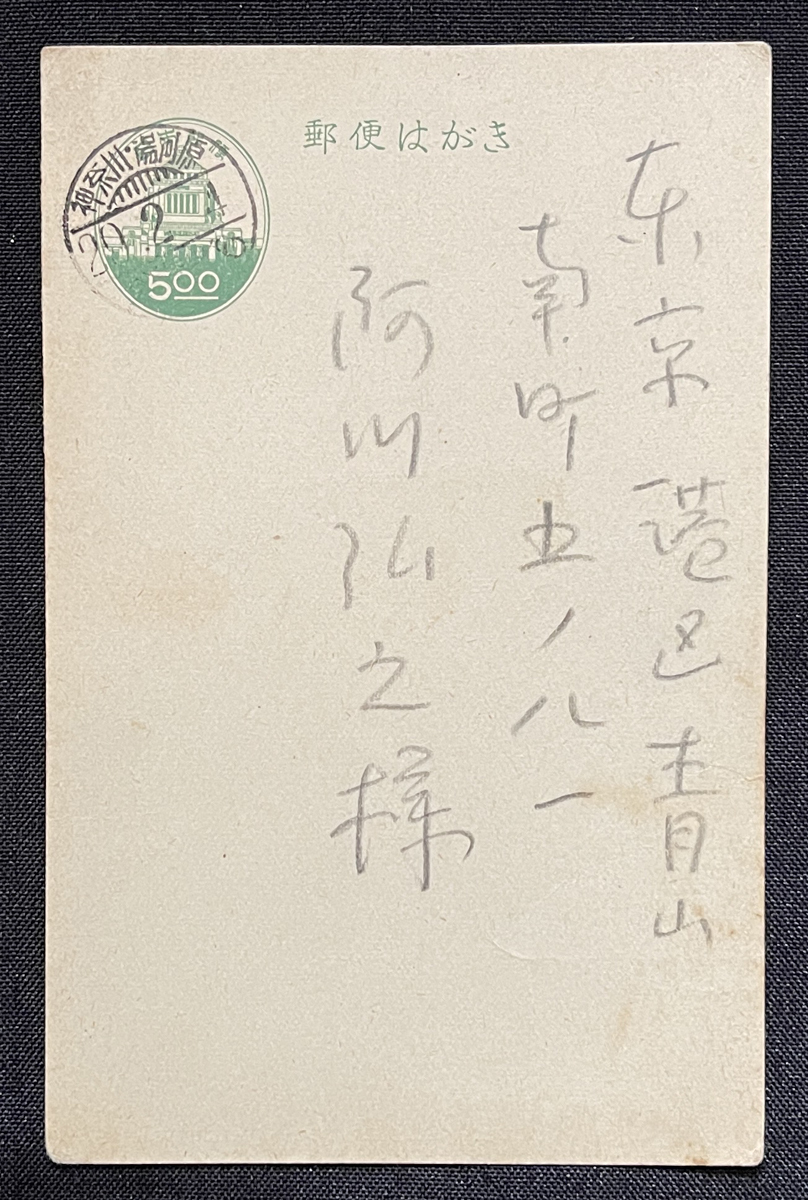 郵便はがき
神奈川・湯河原
2
5.00
東京港区青山
南町五ノ八一
阿川弘之様